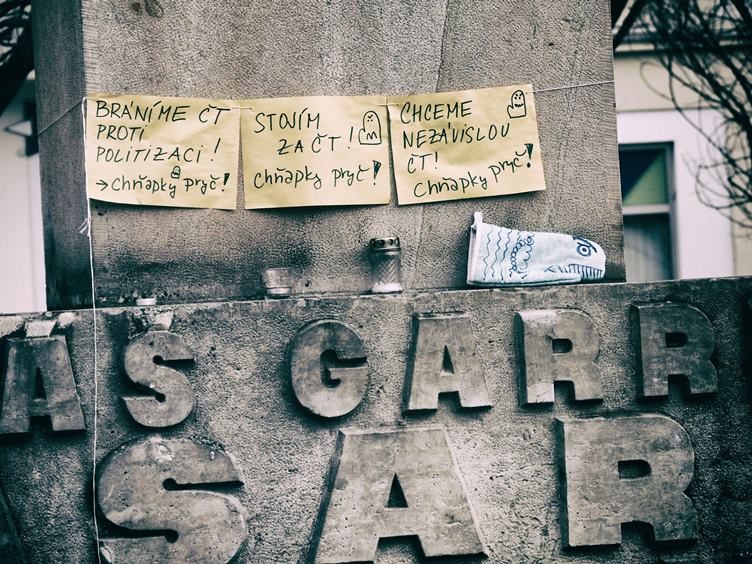 BRÁNÍME ČT
PROTI
POLITIZACI!
→ Chňapky pryč!
STOJÍM
ZA ČT!
Chňapky pryč!
CHCEME
NEZÁVISLOU
ČT!
Chňapky pryč!
ÁŠ GARR
SAR